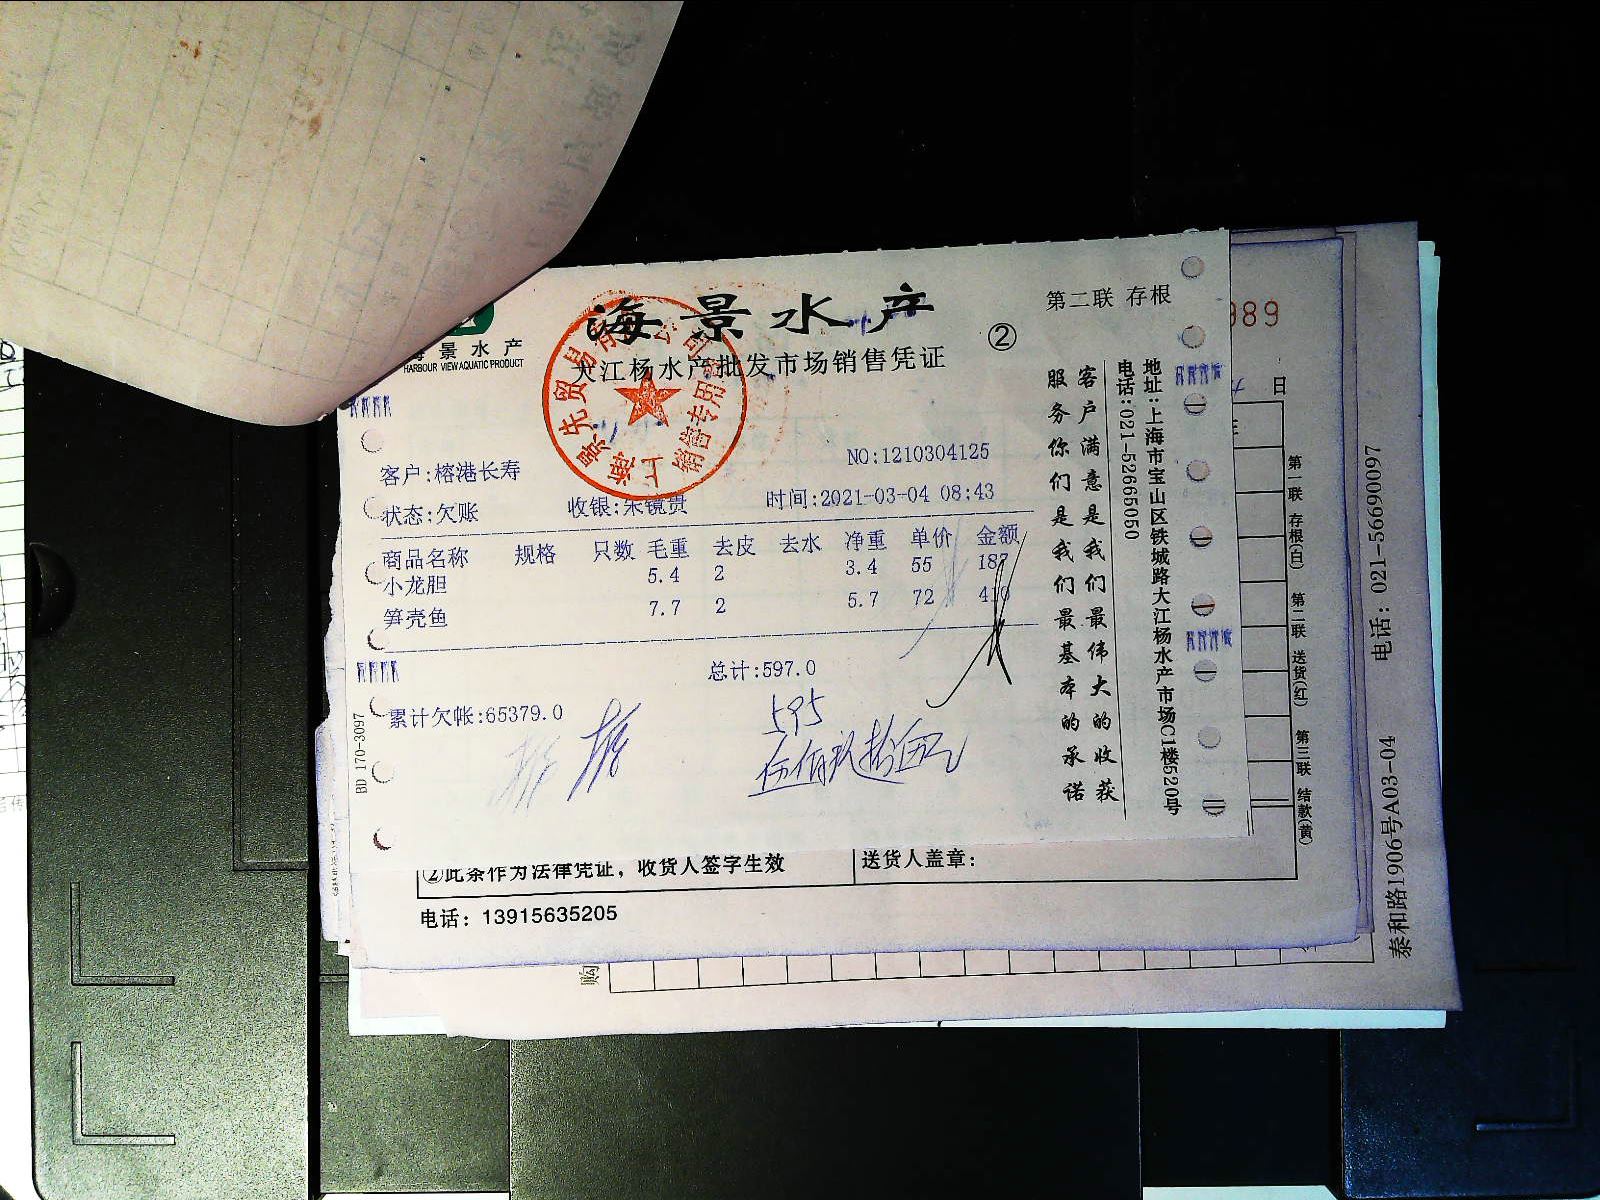 海景水产
第二联 存根
②
海景水产
HARBOUR VIEW AQUATIC PRODUCT
大江杨水产批发市场销售凭证
销售专用
NO:1210304125
客户:榕港长寿
状态:欠账 收银:朱镜贵 时间:2021-03-04 08:43
商品名称 规格 只数 毛重 去皮 去水 净重 单价 金额
小龙胆 5.4 2 3.4 55 187
笋壳鱼 7.7 2 5.7 72 410
总计:597.0
累计欠帐:65379.0
595
伍佰玖拾伍元
BD 170-3097
客户满意是我们最伟大的收获
服务你们是我们最基本的承诺
地址:上海市宝山区铁城路大江杨水产市场C1楼520号
电话:021-52665050
989
日
第一联 存根(白) 第二联 送货(红) 第三联 结款(黄)
②此条作为法律凭证，收货人签字生效
送货人盖章：
电话：13915635205
购
泰和路1906号A03-04 电话：021-56690097